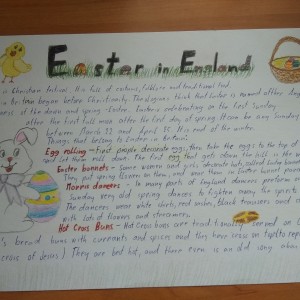 Easter in England
is Christian festival. It is full of customs, folklore and traditional food.
began before Christianity.
is the dawn and spring. Easter is celebrating on the first Sunday
after the first full moon after the first day of spring. It can be any Sunday
between March 22 and April 25. It is end of the winter.
Things that belong to Easter in Britain:
Egg rolling - First people decorate eggs, then take the eggs to the top of
and let them roll down. The first egg that gets down the hill is the
Easter bonnets - Some women and girls decorate hats, called Easter bonnets
and spring flowers on them, and wear them in Easter bonnet
Morris dancers - In many parts of England dancers perform on
Sunday very old spring dances to frighten away the spirits
The dancers wear white shirts, red sashes, black trousers and
with lots of flowers and streamers.
Hot Cross Buns - Hot Cross buns are traditionally served on
bread buns with currants and spices and they have cross on top (to
cross of Jesus.) They are best hot, and there even is an old song about